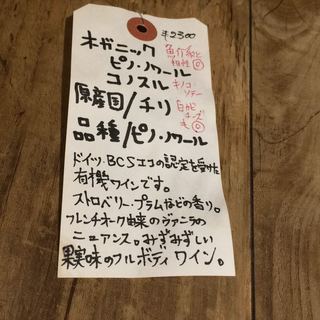 ¥2300
オガニック
ピノ・ノワール
コノスル
原産国/チリ
品種/ピノ・ノワール
魚介系と
相性◎
キノコ
ソテー
白カビ
チーズ
も◎
ドイツ、BCSエコの認定を受けた
有機ワインです。
ストロベリー・プラムなどの香り。
フレンチオーク由来のヴァニラの
ニュアンス。みずみずしい
果実味のフルボディワイン。